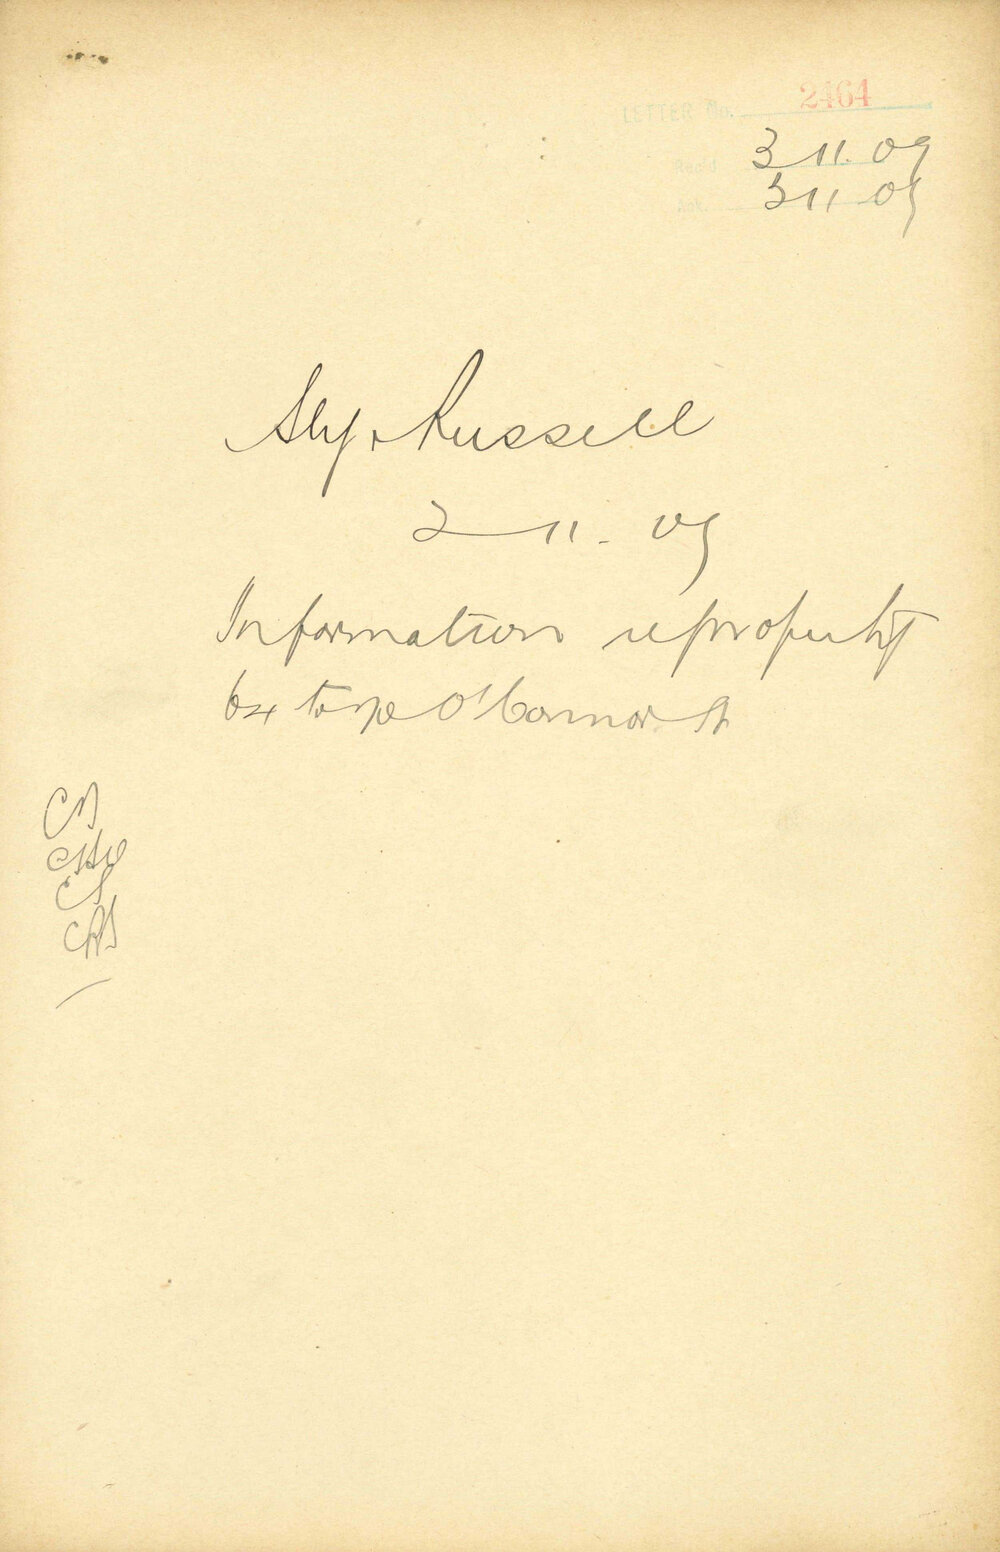 LETTER No. 2464
Rec'd 3 11. 09
Ack. 3 11 09
Sly & Russell
2 11. 09
Information re property
O'Connor St